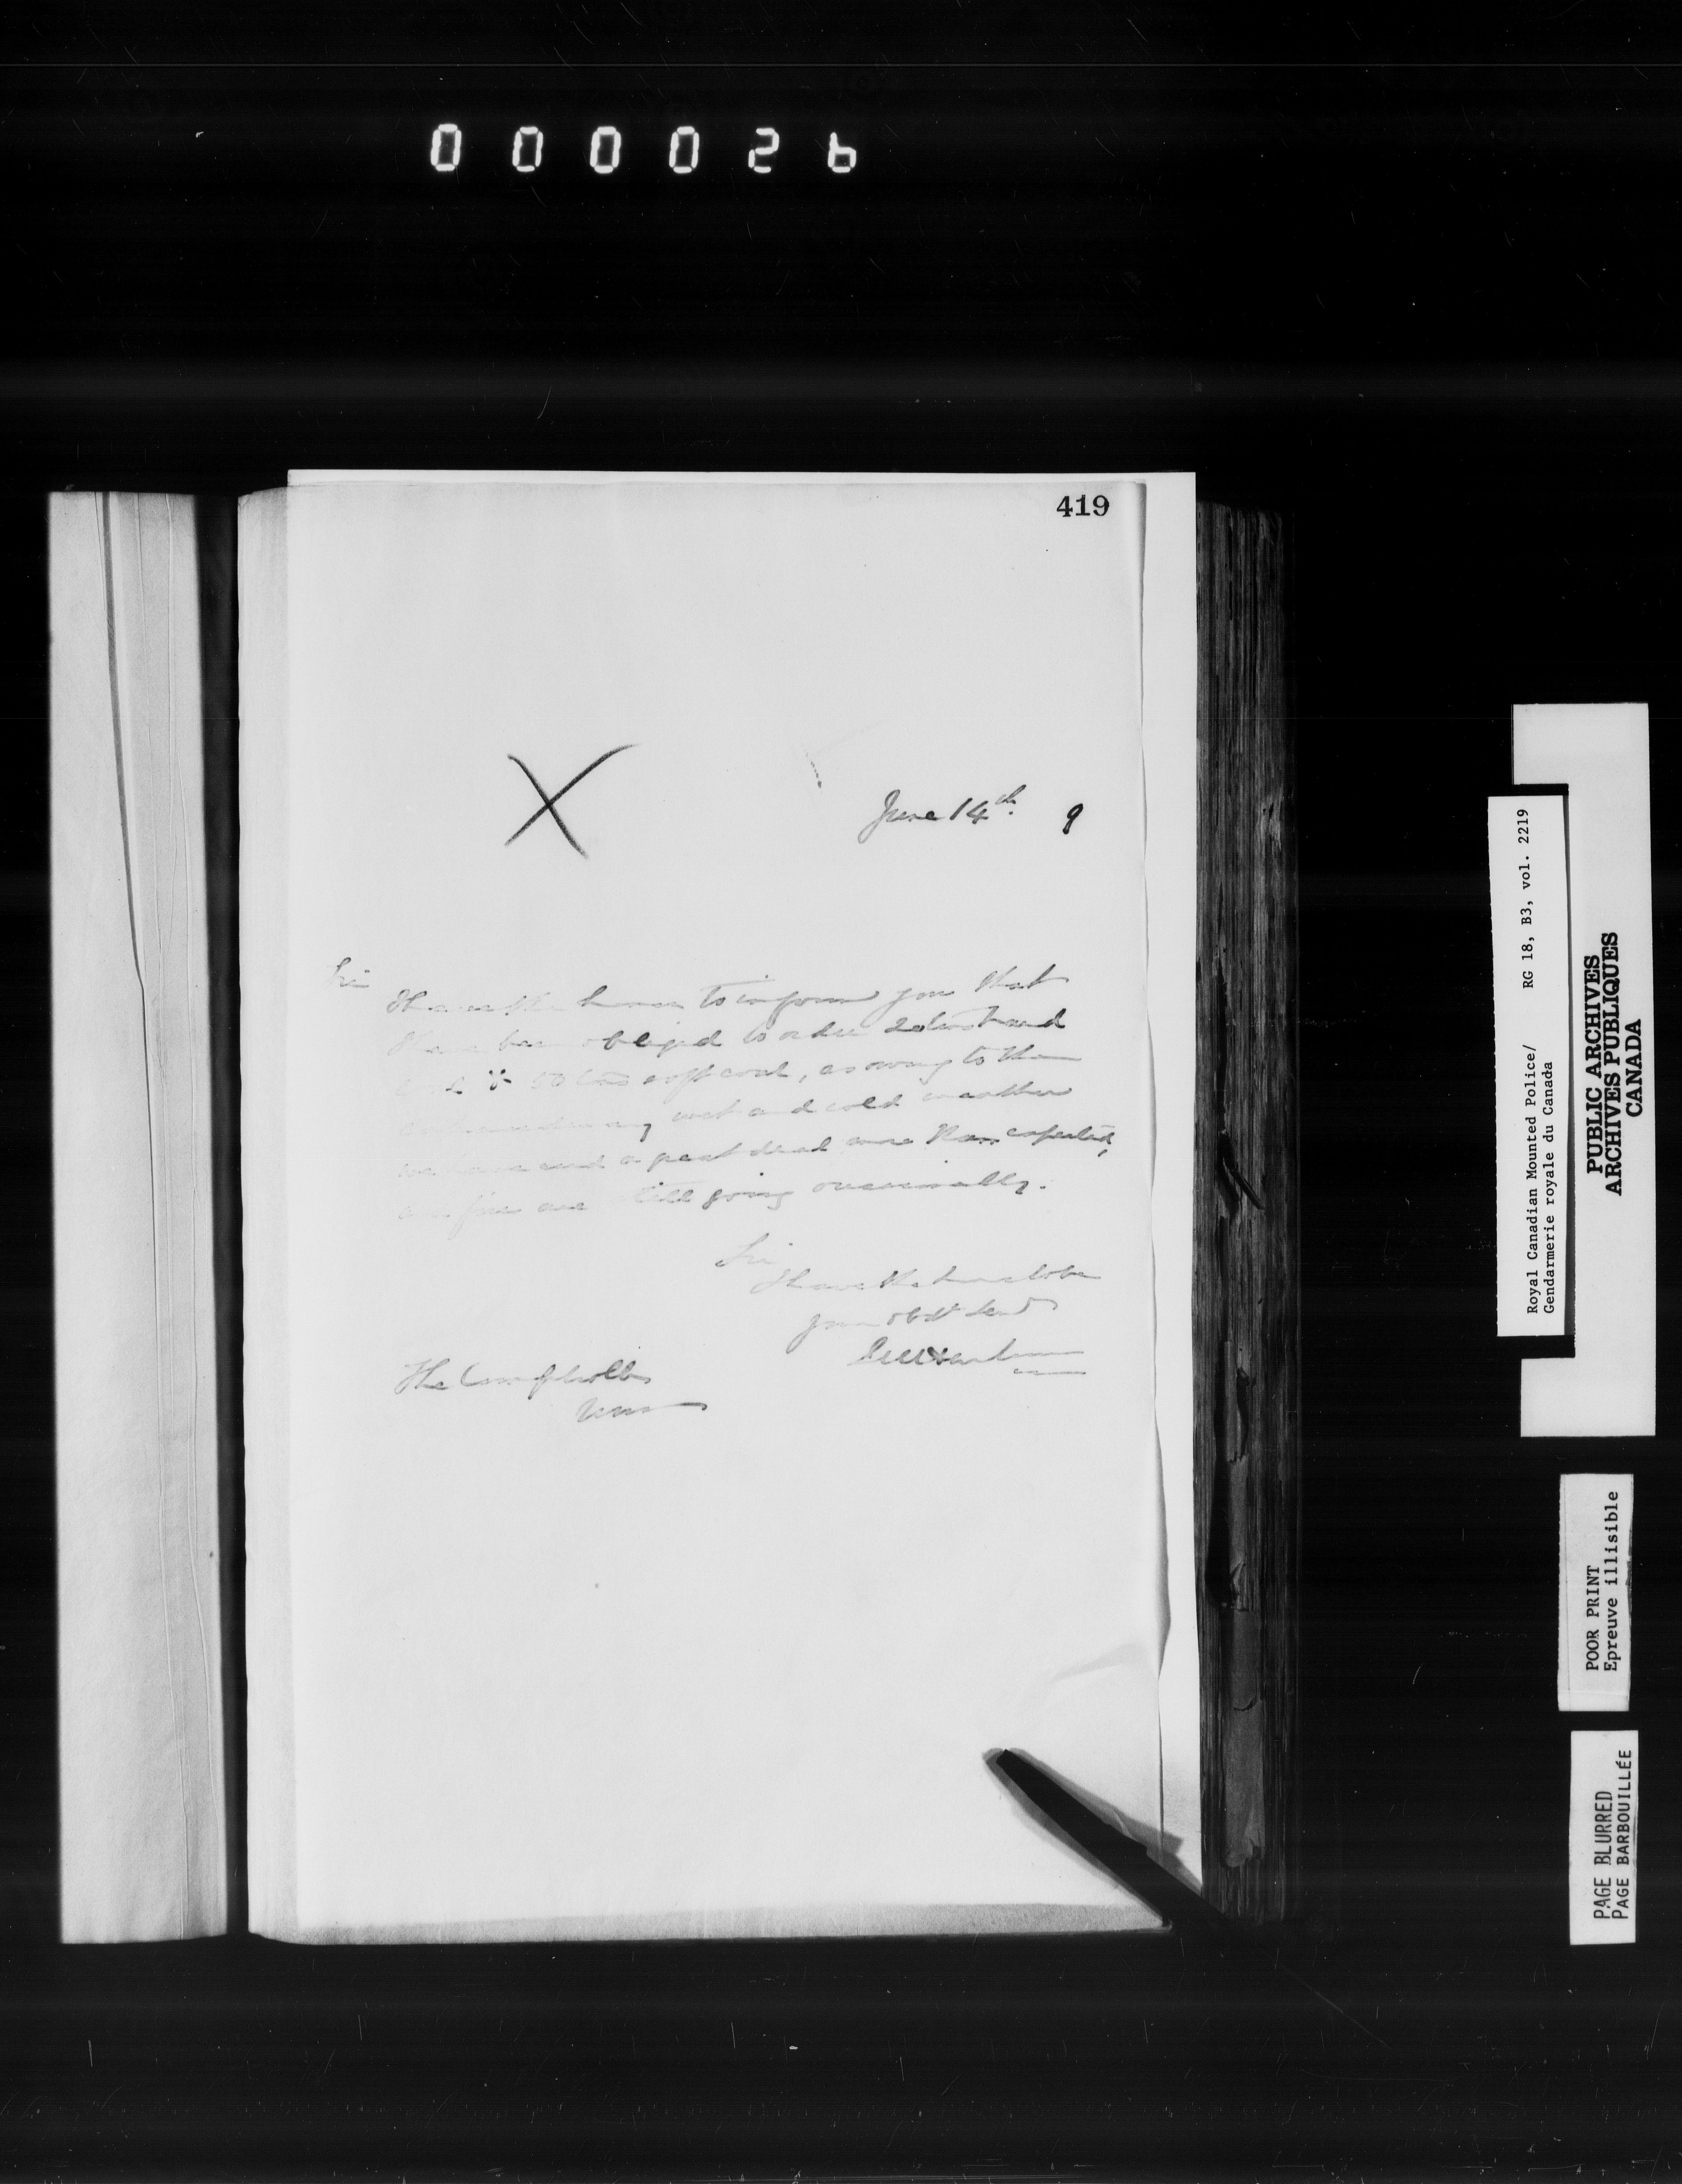 000026
419
X
June 14th. 9
Sir
I have the honour to inform you that
I have been obliged to order 20 tons hard
coal & 50 tons soft coal, as owing to the
wet and cold weather
we have used a great deal more than expected,
and fires are still going occasionally.
Sir
I have the honor to be
your obdt Servt
The Comptroller
Royal Canadian Mounted Police/ RG 18, B3, vol. 2219
Gendarmerie royale du Canada
PUBLIC ARCHIVES
ARCHIVES PUBLIQUES
CANADA
POOR PRINT
Epreuve illisible
PAGE BLURRED
PAGE BARBOUILLÉE